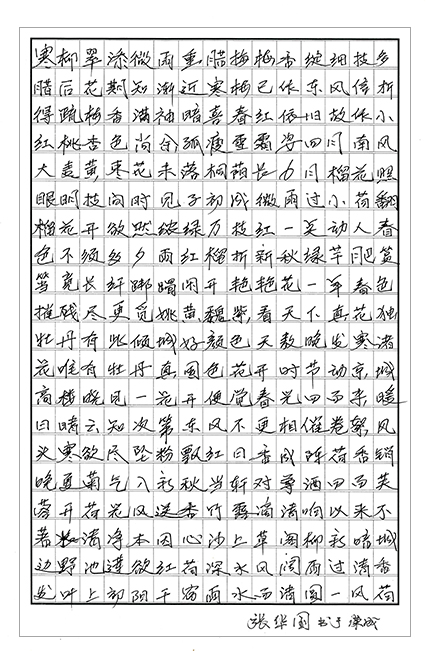 寒柳翠添微雨重腊梅梅香绽细枝多
腊后花期知渐近寒梅已作东风信折
得疏梅香满袖暗喜春红依旧故作小
红桃杏色尚余孤瘦雪霜姿四月南风
大麦黄枣花未落桐荫长五月榴花照
眼明枝间时见子初成微雨过小荷翻
榴花开欲然绿万枝红一笑动人春
色不须多夕雨红榴折新秋绿芋肥篮
筥竞长纤脚媚闲开艳艳花一年春色
摧残尽更觅姚黄魏紫看天下真花独
牡丹有此倾城好颜色天教晚发赛诸
花唯有牡丹真国色花开时节动京城
高楼晓见一花开便觉春光四面来暖
日晴云知次第东风不更相催卷絮风
头寒欲尽坠粉飘红日香成阵荷香销
晚夏菊气入新秋当轩对尊酒四面芙
蓉开荷花风送香竹露滴清响以来不
著水清净本因心沙上草阁柳新暗城
边野池莲欲红荷深水风阔雨过清香
发叶上初阳干宿雨水面清圆一风荷
张华国书于